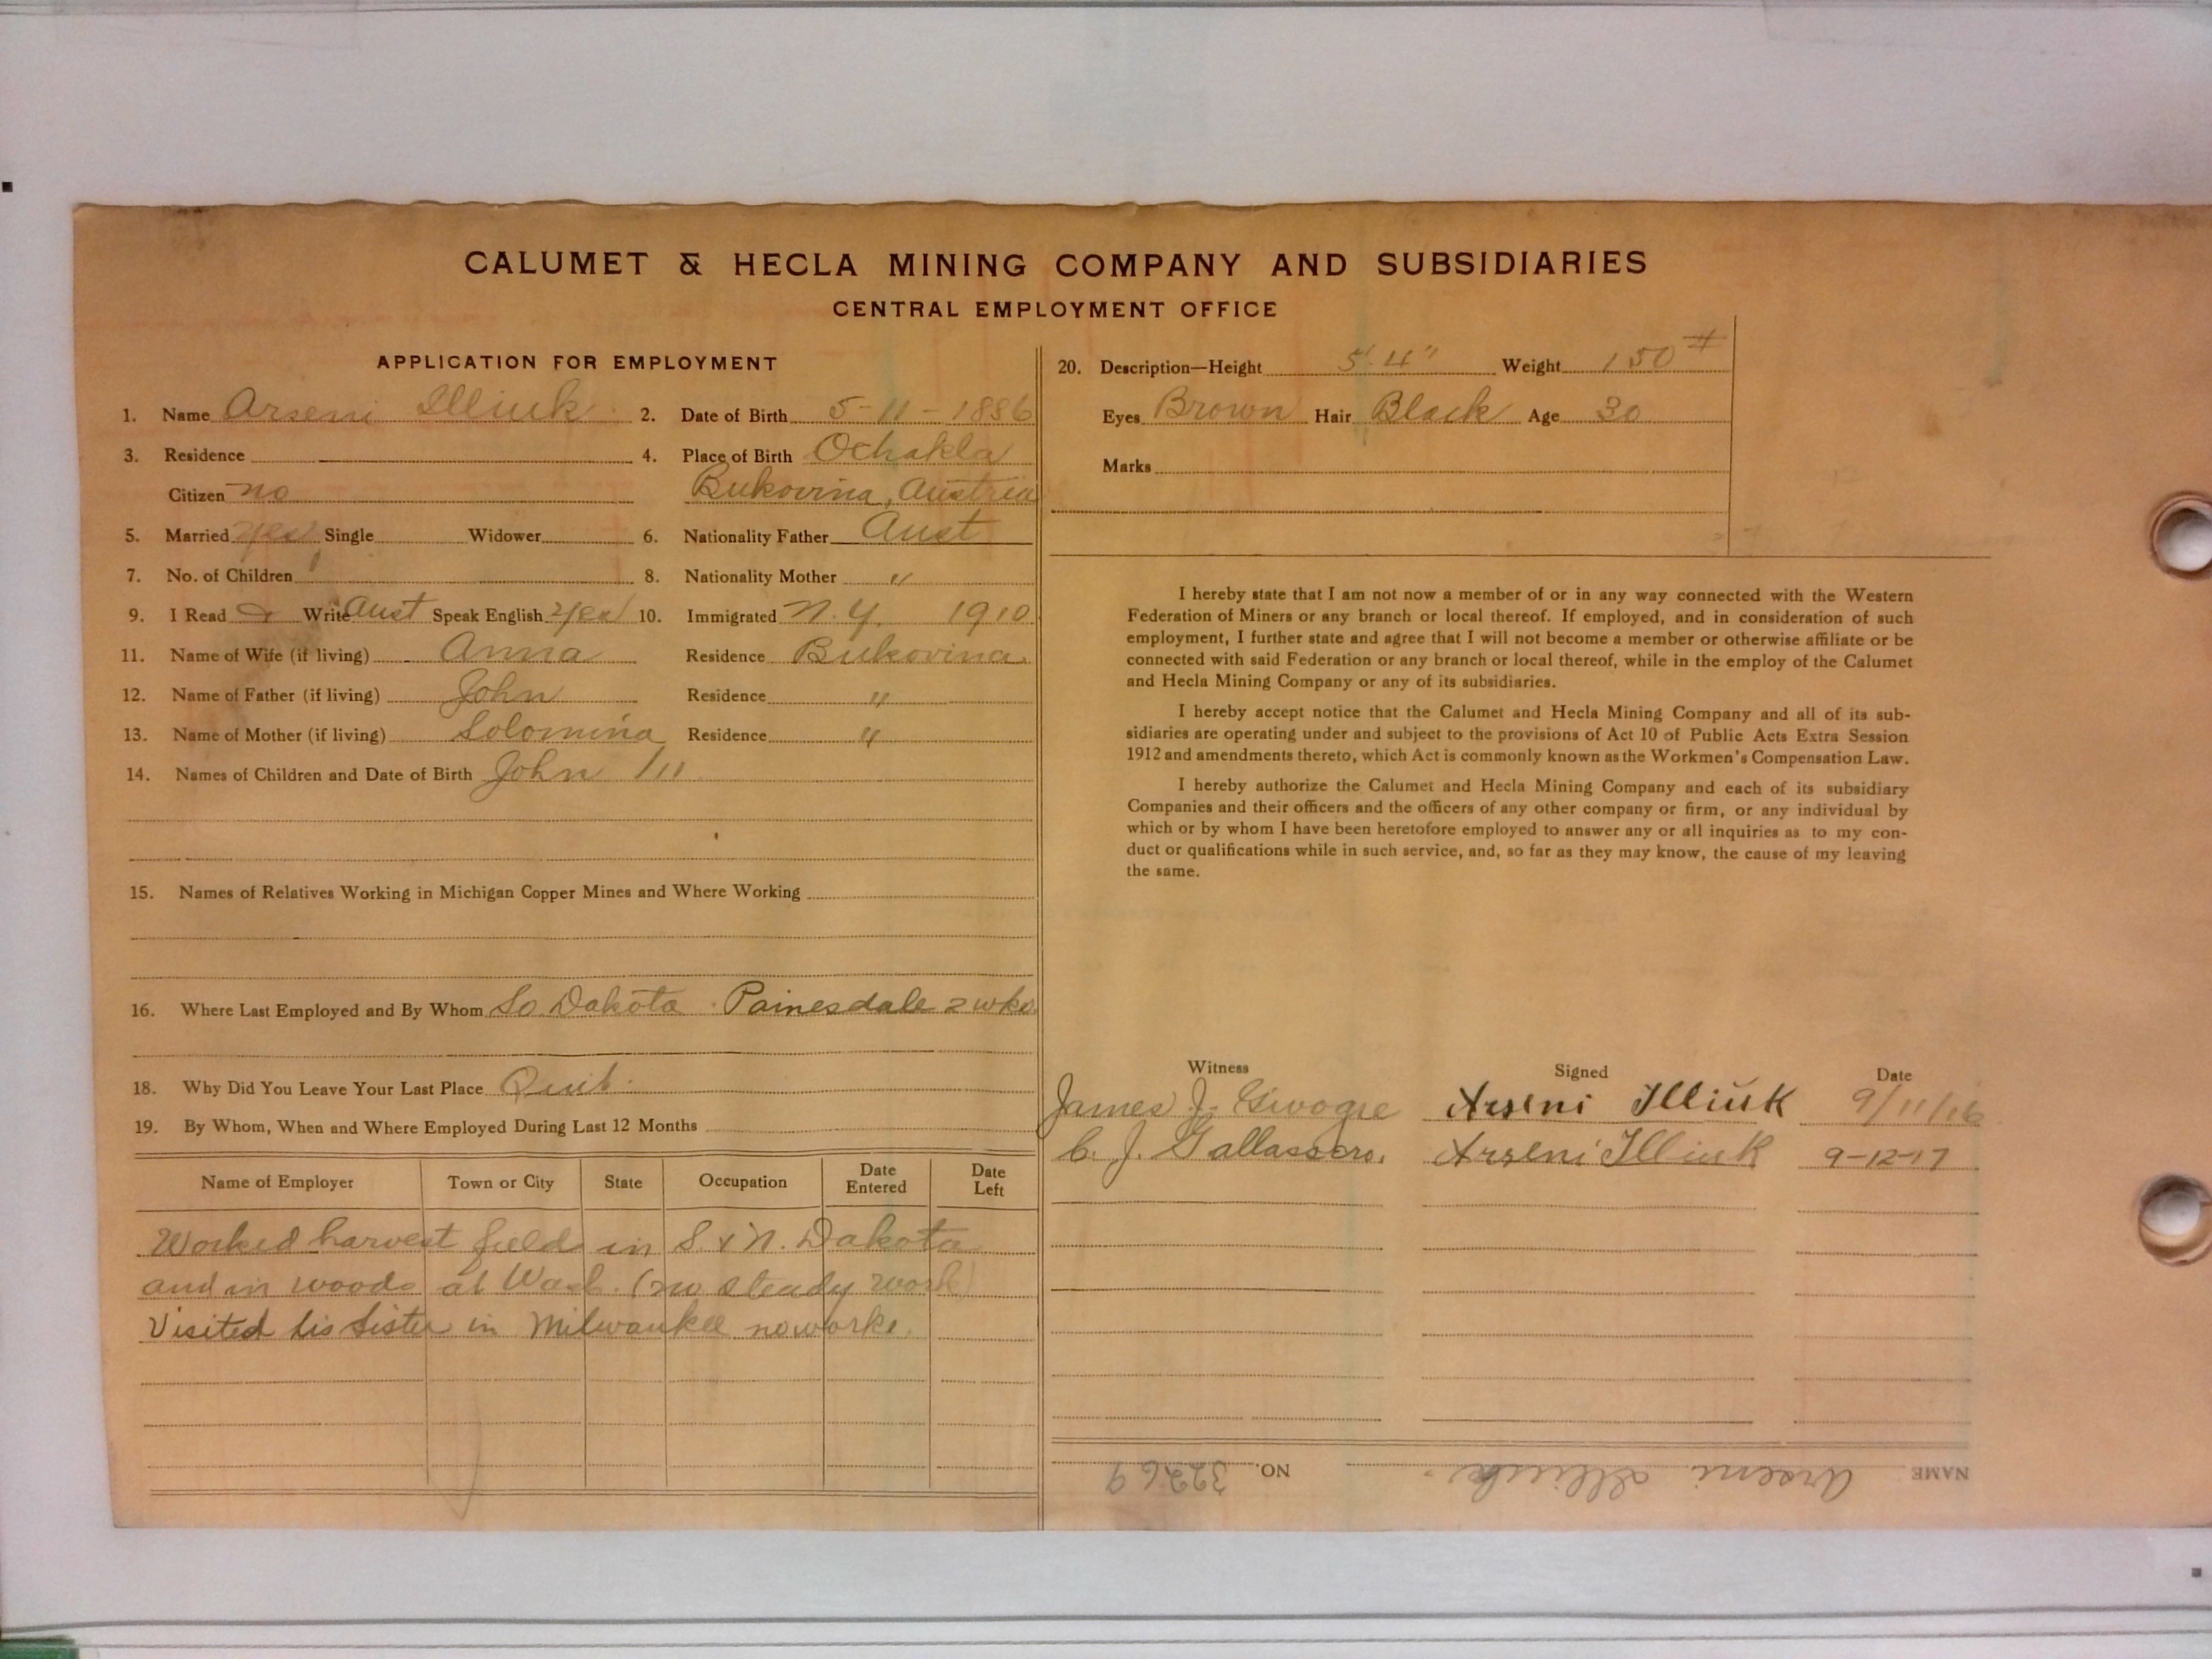 CALUMET & HECLA MINING COMPANY AND SUBSIDIARIES
CENTRAL EMPLOYMENT OFFICE
APPLICATION FOR EMPLOYMENT
1. Name Arseni Illiuk 2. Date of Birth 5-11-1886
3. Residence 4. Place of Birth Ochakla
Citizen no Bukovina, Austria
5. Married yes Single Widower 6. Nationality Father Aust
7. No. of Children 1 8. Nationality Mother "
9. I Read & Write Aust Speak English yes 10. Immigrated N.Y. 1910
11. Name of Wife (if living) Anna Residence Bukovina
12. Name of Father (if living) John Residence "
13. Name of Mother (if living) Solomina Residence "
14. Names of Children and Date of Birth John
15. Names of Relatives Working in Michigan Copper Mines and Where Working
16. Where Last Employed and By Whom So. Dakota Painesdale 2 wks.
18. Why Did You Leave Your Last Place Quit.
19. By Whom, When and Where Employed During Last 12 Months
Name of Employer Town or City State Occupation Date Entered Date Left
Worked harvest field in S. & N. Dakota
and in woods at Wash. (no steady work)
Visited his sister in Milwaukee no works.
20. Description—Height 5'-4" Weight 150 #
Eyes Brown Hair Black Age 30
Marks
I hereby state that I am not now a member of or in any way connected with the Western
Federation of Miners or any branch or local thereof. If employed, and in consideration of such
employment, I further state and agree that I will not become a member or otherwise affiliate or be
connected with said Federation or any branch or local thereof, while in the employ of the Calumet
and Hecla Mining Company or any of its subsidiaries.
I hereby accept notice that the Calumet and Hecla Mining Company and all of its sub-
sidiaries are operating under and subject to the provisions of Act 10 of Public Acts Extra Session
1912 and amendments thereto, which Act is commonly known as the Workmen's Compensation Law.
I hereby authorize the Calumet and Hecla Mining Company and each of its subsidiary
Companies and their officers and the officers of any other company or firm, or any individual by
which or by whom I have been heretofore employed to answer any or all inquiries as to my con-
duct or qualifications while in such service, and, so far as they may know, the cause of my leaving
the same.
Witness Signed Date
James J. Arseni Illiuk 9/11/16
C. J. Gallassero. Arseni Illiuk 9-12-17
NAME Arseni Illiuk. NO. 32269